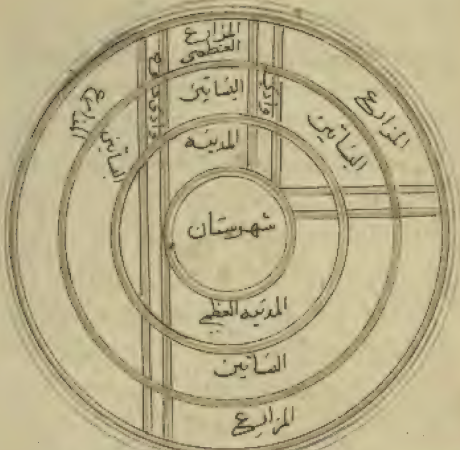 المزارع
العظمى
البساتين
المدينه
شهرستان
المدينه العظمى
البساتين
المزارع
المزارع
البساتين
البساتين
المزارع